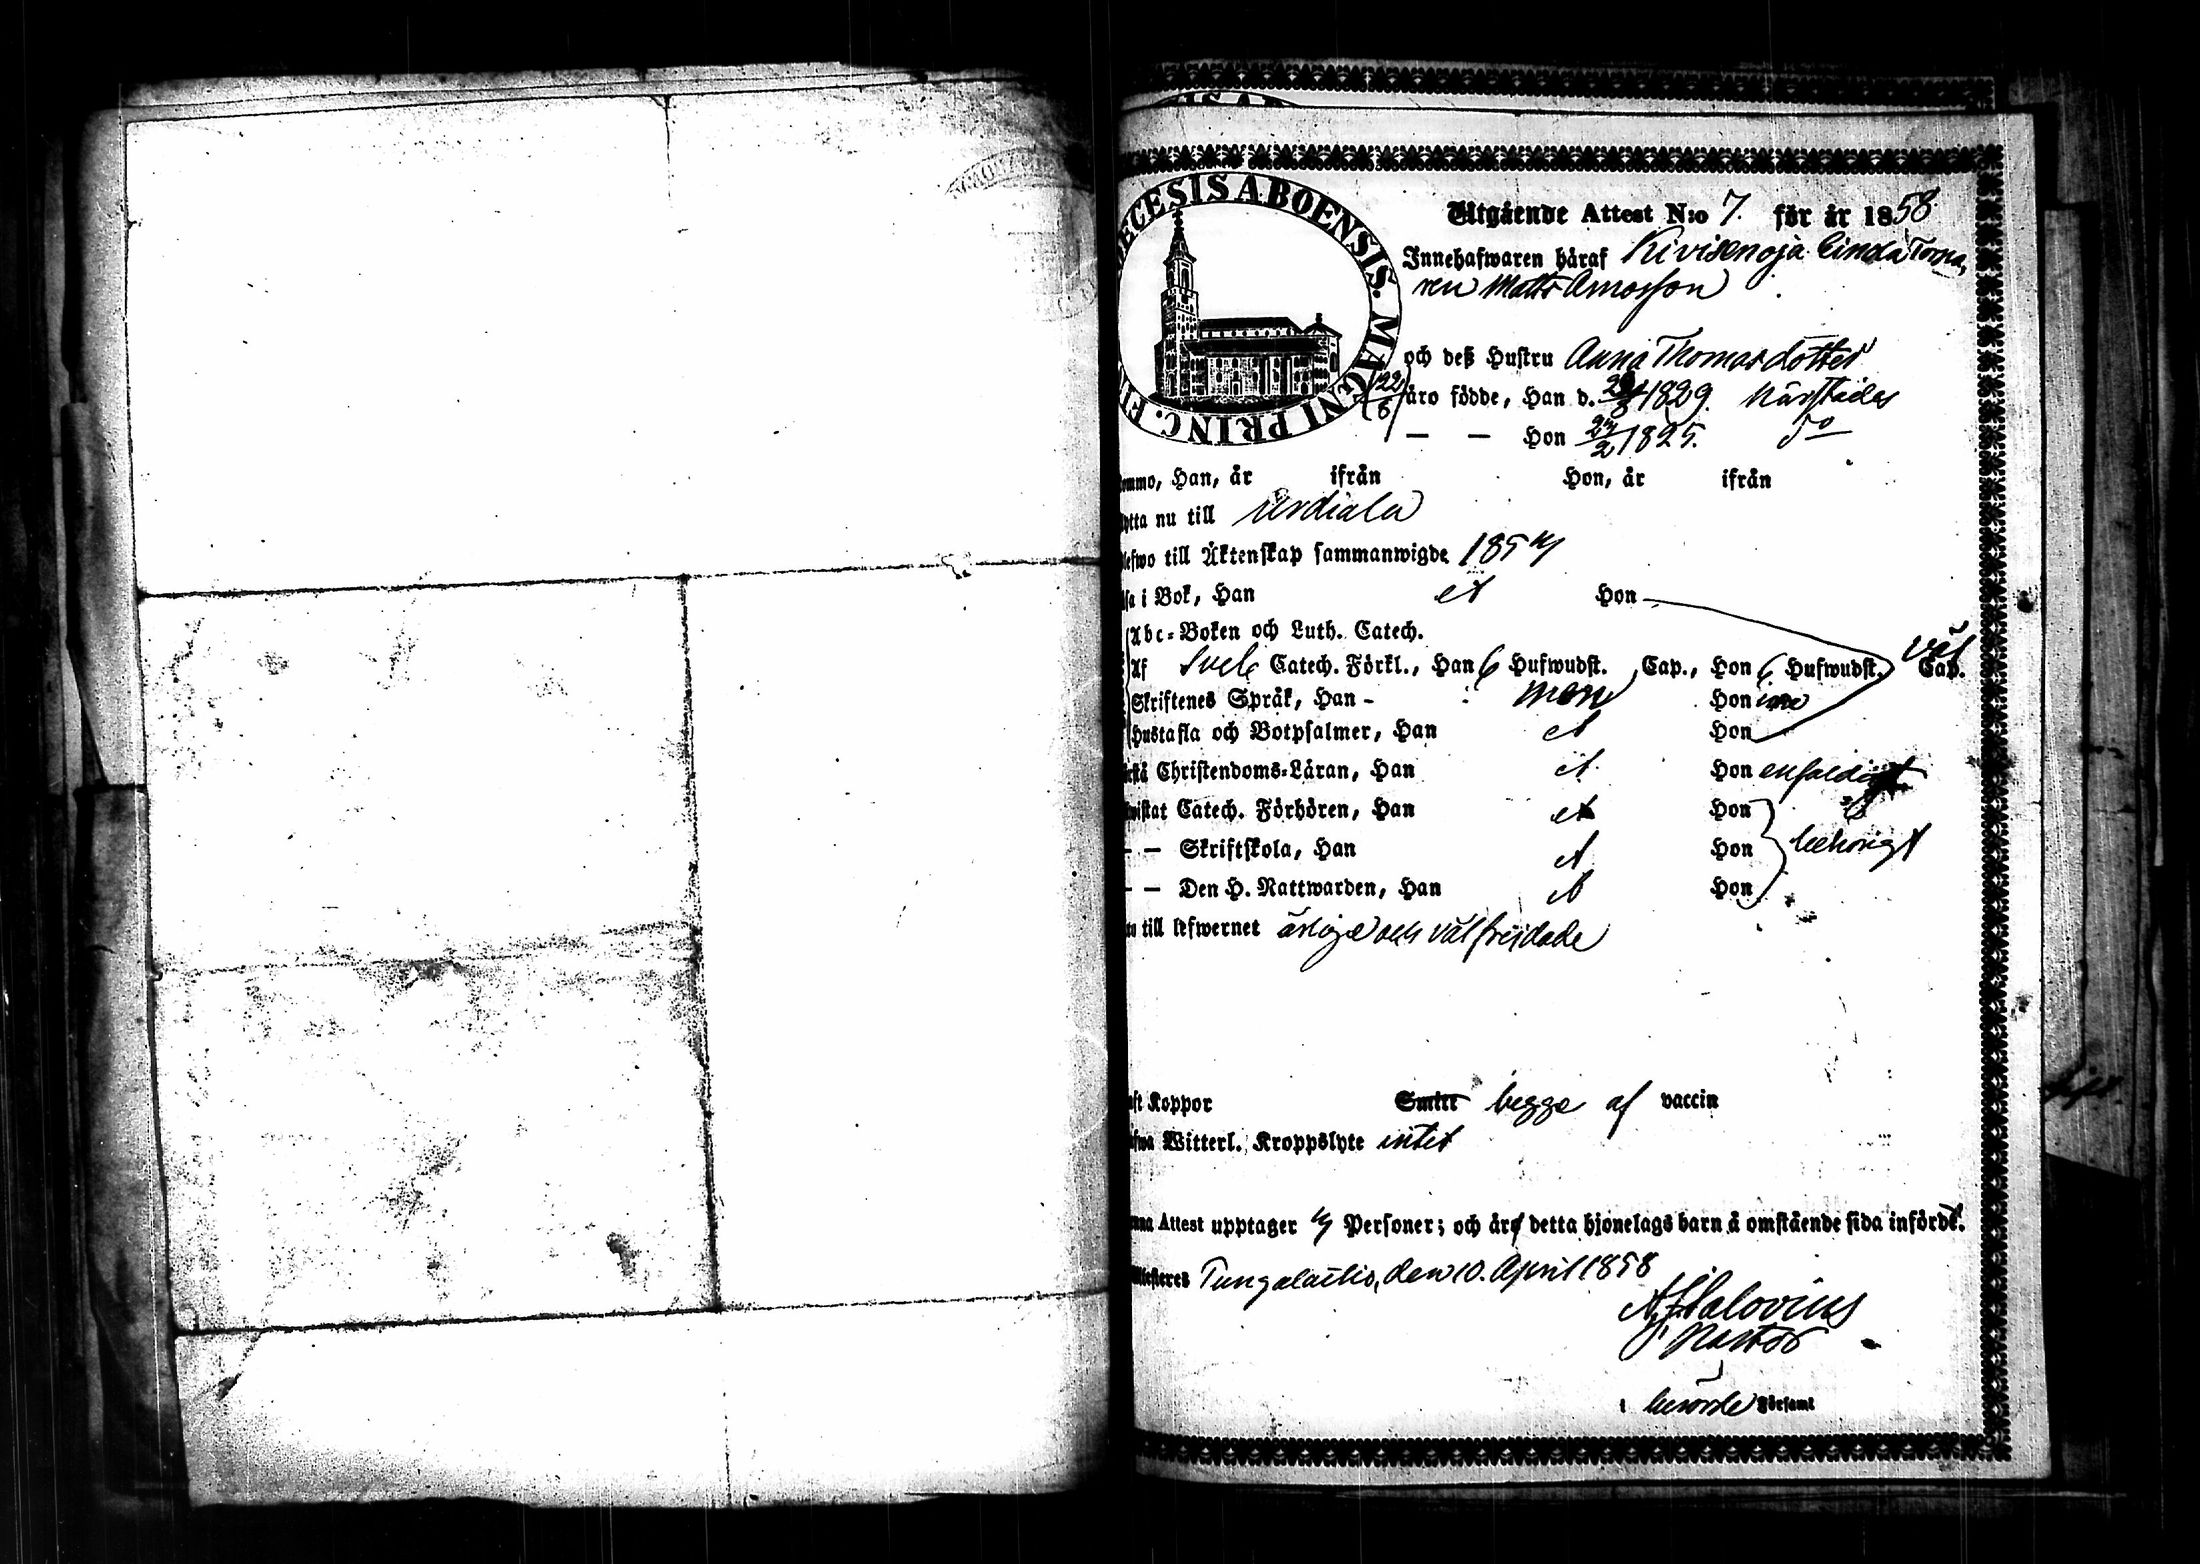 DIECESIS ABOENSIS. MAGNI PRINC. FI
Utgående Attest N:o 7. för år 1858.
Innehafwaren häraf Kivisenoja Cinda Torpa,
ren Matts Amosson
och deß Hustru Anna Thomasdotter
22/6 äro födde, Han d. 1829. härstädes
— — Hon 24/2 1825. do
ommo, Han, år ifrån Hon, år ifrån
ytta nu till Urdiala
lefwo till Äktenskap sammanwigde
äsa i Bok, Han et Hon
Abc-Boken och Luth. Catech. väl
Af Sveb Catech. Förkl., Han 6 Hufwudst. Cap., Hon 6 Hufwudst. Cap.
Skriftenes Språk, Han - men Hon
Hustafla och Botpsalmer, Han et Hon
rstå Christendoms-Läran, Han et Hon enfaldigt
wistat Catech. Förhören, Han et Hon
— — Skriftskola, Han et Hon behörigt
— — Den H. Nattwarden, Han et Hon
till lefwernet ärlige och välfrejdade
aft Koppor Smitt begge af vaccin
afwa Witterl. Kroppslyte intet
nna Attest upptager 4 Personer; och äro detta hjonelags barn å omstående sida införde.
Attesteres Tungelaitio, den 10. April 1858
Salovius
Pastor
i berörde Församl